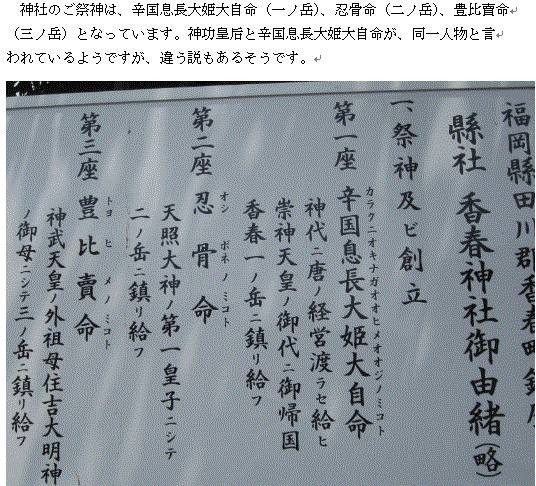 神社のご祭神は、辛国息長大姫大自命（一ノ岳）、忍骨命（二ノ岳）、豊比賣命
（三ノ岳）となっています。神功皇后と辛国息長大姫大自命が、同一人物と言
われているようですが、違う説もあるそうです。
福岡縣田川郡香春町
縣社 香春神社御由緒(略)
一、祭神及ビ創立
第一座 辛国息長大姫大自命
カラクニオキナガオオヒメオオジノミコト
神代ニ唐ノ経営渡ラセ給ヒ
崇神天皇ノ御代ニ御帰国
香春一ノ岳ニ鎮リ給フ
第二座 忍骨命
オシボネノミコト
天照大神ノ第一皇子ニシテ
二ノ岳ニ鎮リ給フ
第三座 豊比賣命
トヨヒメノミコト
神武天皇ノ外祖母住吉大明神
ノ御母ニシテ三ノ岳ニ鎮リ給フ